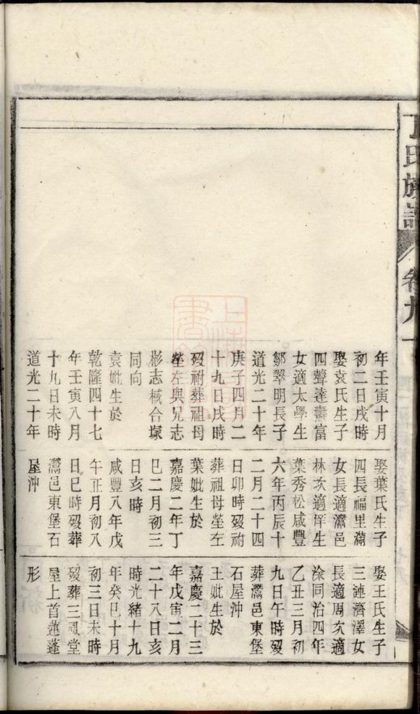 丁氏族譜
卷九
年壬寅十月
初二日戌時
娶袁氏生子
四聲達壽富
女適太學生
鄒翠明長子
道光二十年
庚子四月二
十九日戌時
歿祔葬祖母
塋左與兄志
彬志棫合塚
同向
袁妣生於
乾隆四十七
年壬寅八月
十九日未時
道光二十年
娶葉氏生子
四長福里瀟
女長適瀟邑
林次適庠生
葉秀松咸豐
六年丙辰十
二月二十四
日卯時歿祔
葬祖母塋左
葉妣生於
嘉慶二年丁
巳二月初三
日亥時
咸豐八年戊
午正月初八
日巳時歿葬
瀟邑東堡石
屋沖
娶王氏生子
三漣濟澤女
長適周次適
涂同治四年
乙丑三月初
九日午時歿
葬瀟邑東堡
石屋沖
王妣生於
嘉慶二十三
年戊寅二月
二十八日亥
時光緒十九
年癸巳十月
初三日未時
歿葬三鳳堂
屋上首蓮蓬
形
上海圖書館藏